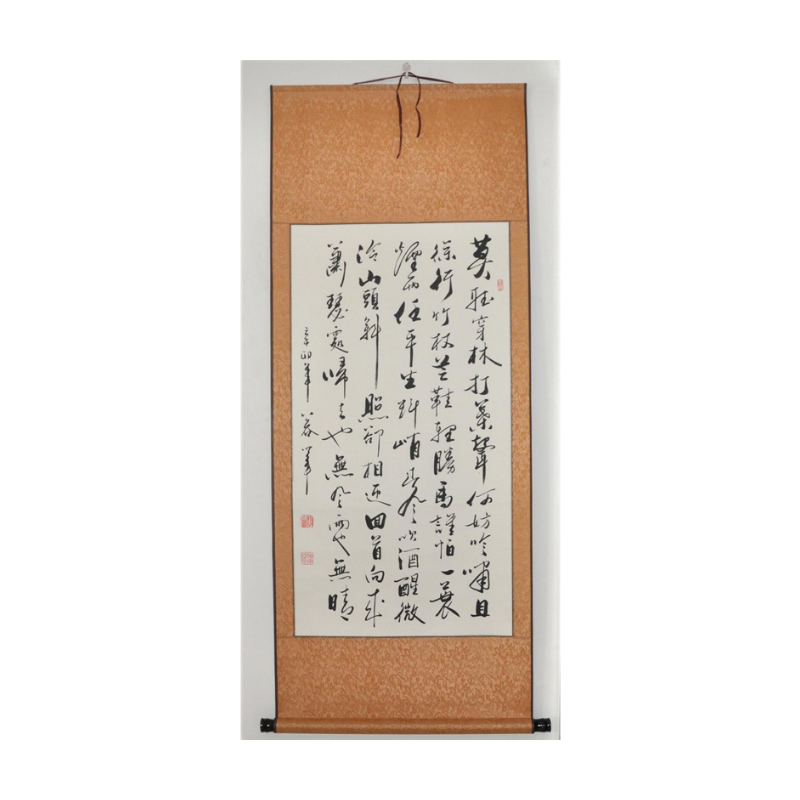 莫聽穿林打葉聲何妨吟嘯且
徐行竹杖芒鞋輕勝馬誰怕一蓑
煙雨任平生料峭春風吹酒醒微
冷山頭斜照卻相迎回首向來
蕭瑟處歸去也無風雨也無晴